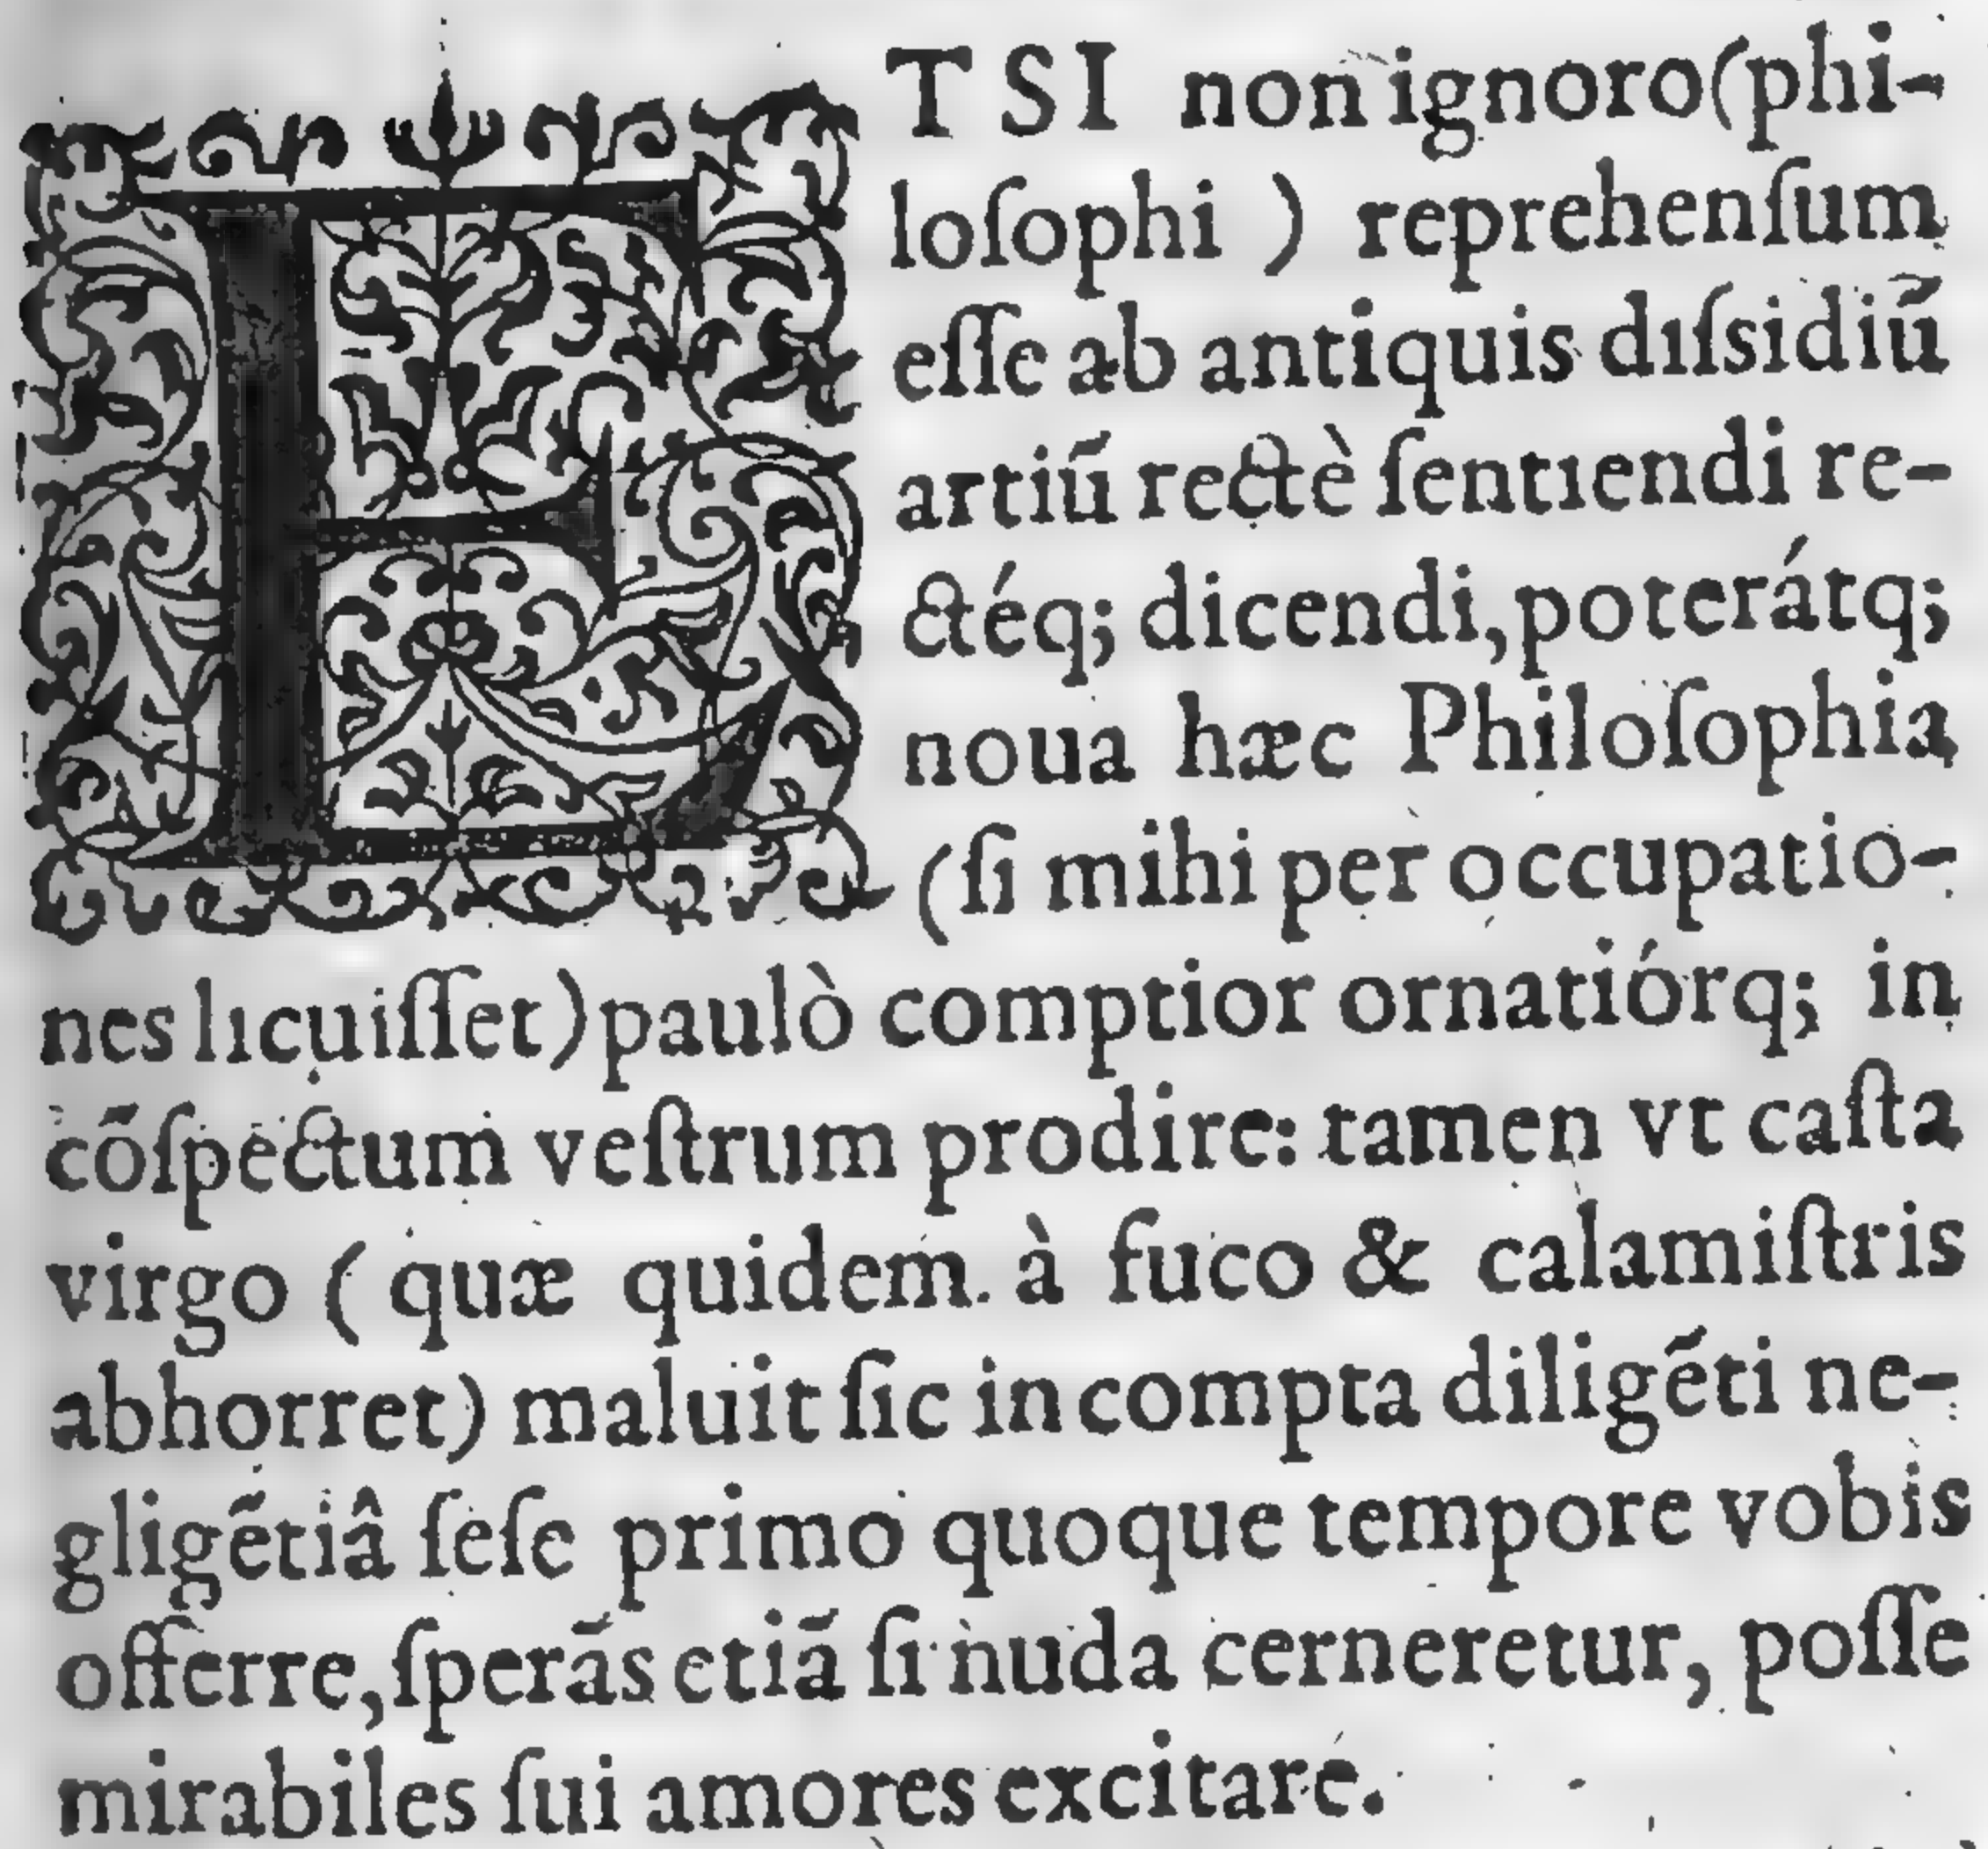 ETSI non ignoro(phi-
loſophi ) reprehenſum
eſſe ab antiquis diſsidiū
artiū rectè ſentiendi re-
ctéq; dicendi, poterátq;
noua hæc Philoſophia
(ſi mihi per occupatio-
nes licuiſſet) paulò comptior ornatiórq; in
cōſpectum veſtrum prodire: tamen vt caſta
virgo ( quæ quidem à fuco & calamiſtris
abhorret) maluit ſic incompta diligēti ne-
gligētiâ ſeſe primo quoque tempore vobis
offerre, ſperās etiā ſi nuda cerneretur, poſſe
mirabiles ſui amores excitare.